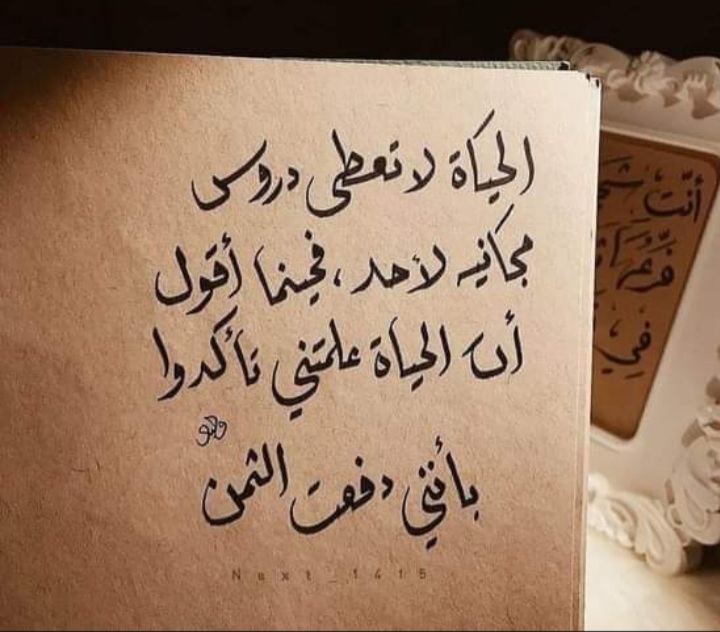 الحياة لا تعطى دروس
مجانيه لأحد، فحينما أقول
أن الحياة علمتني تأكدوا
بأنني دفعت الثمن
Next_1415
أنت